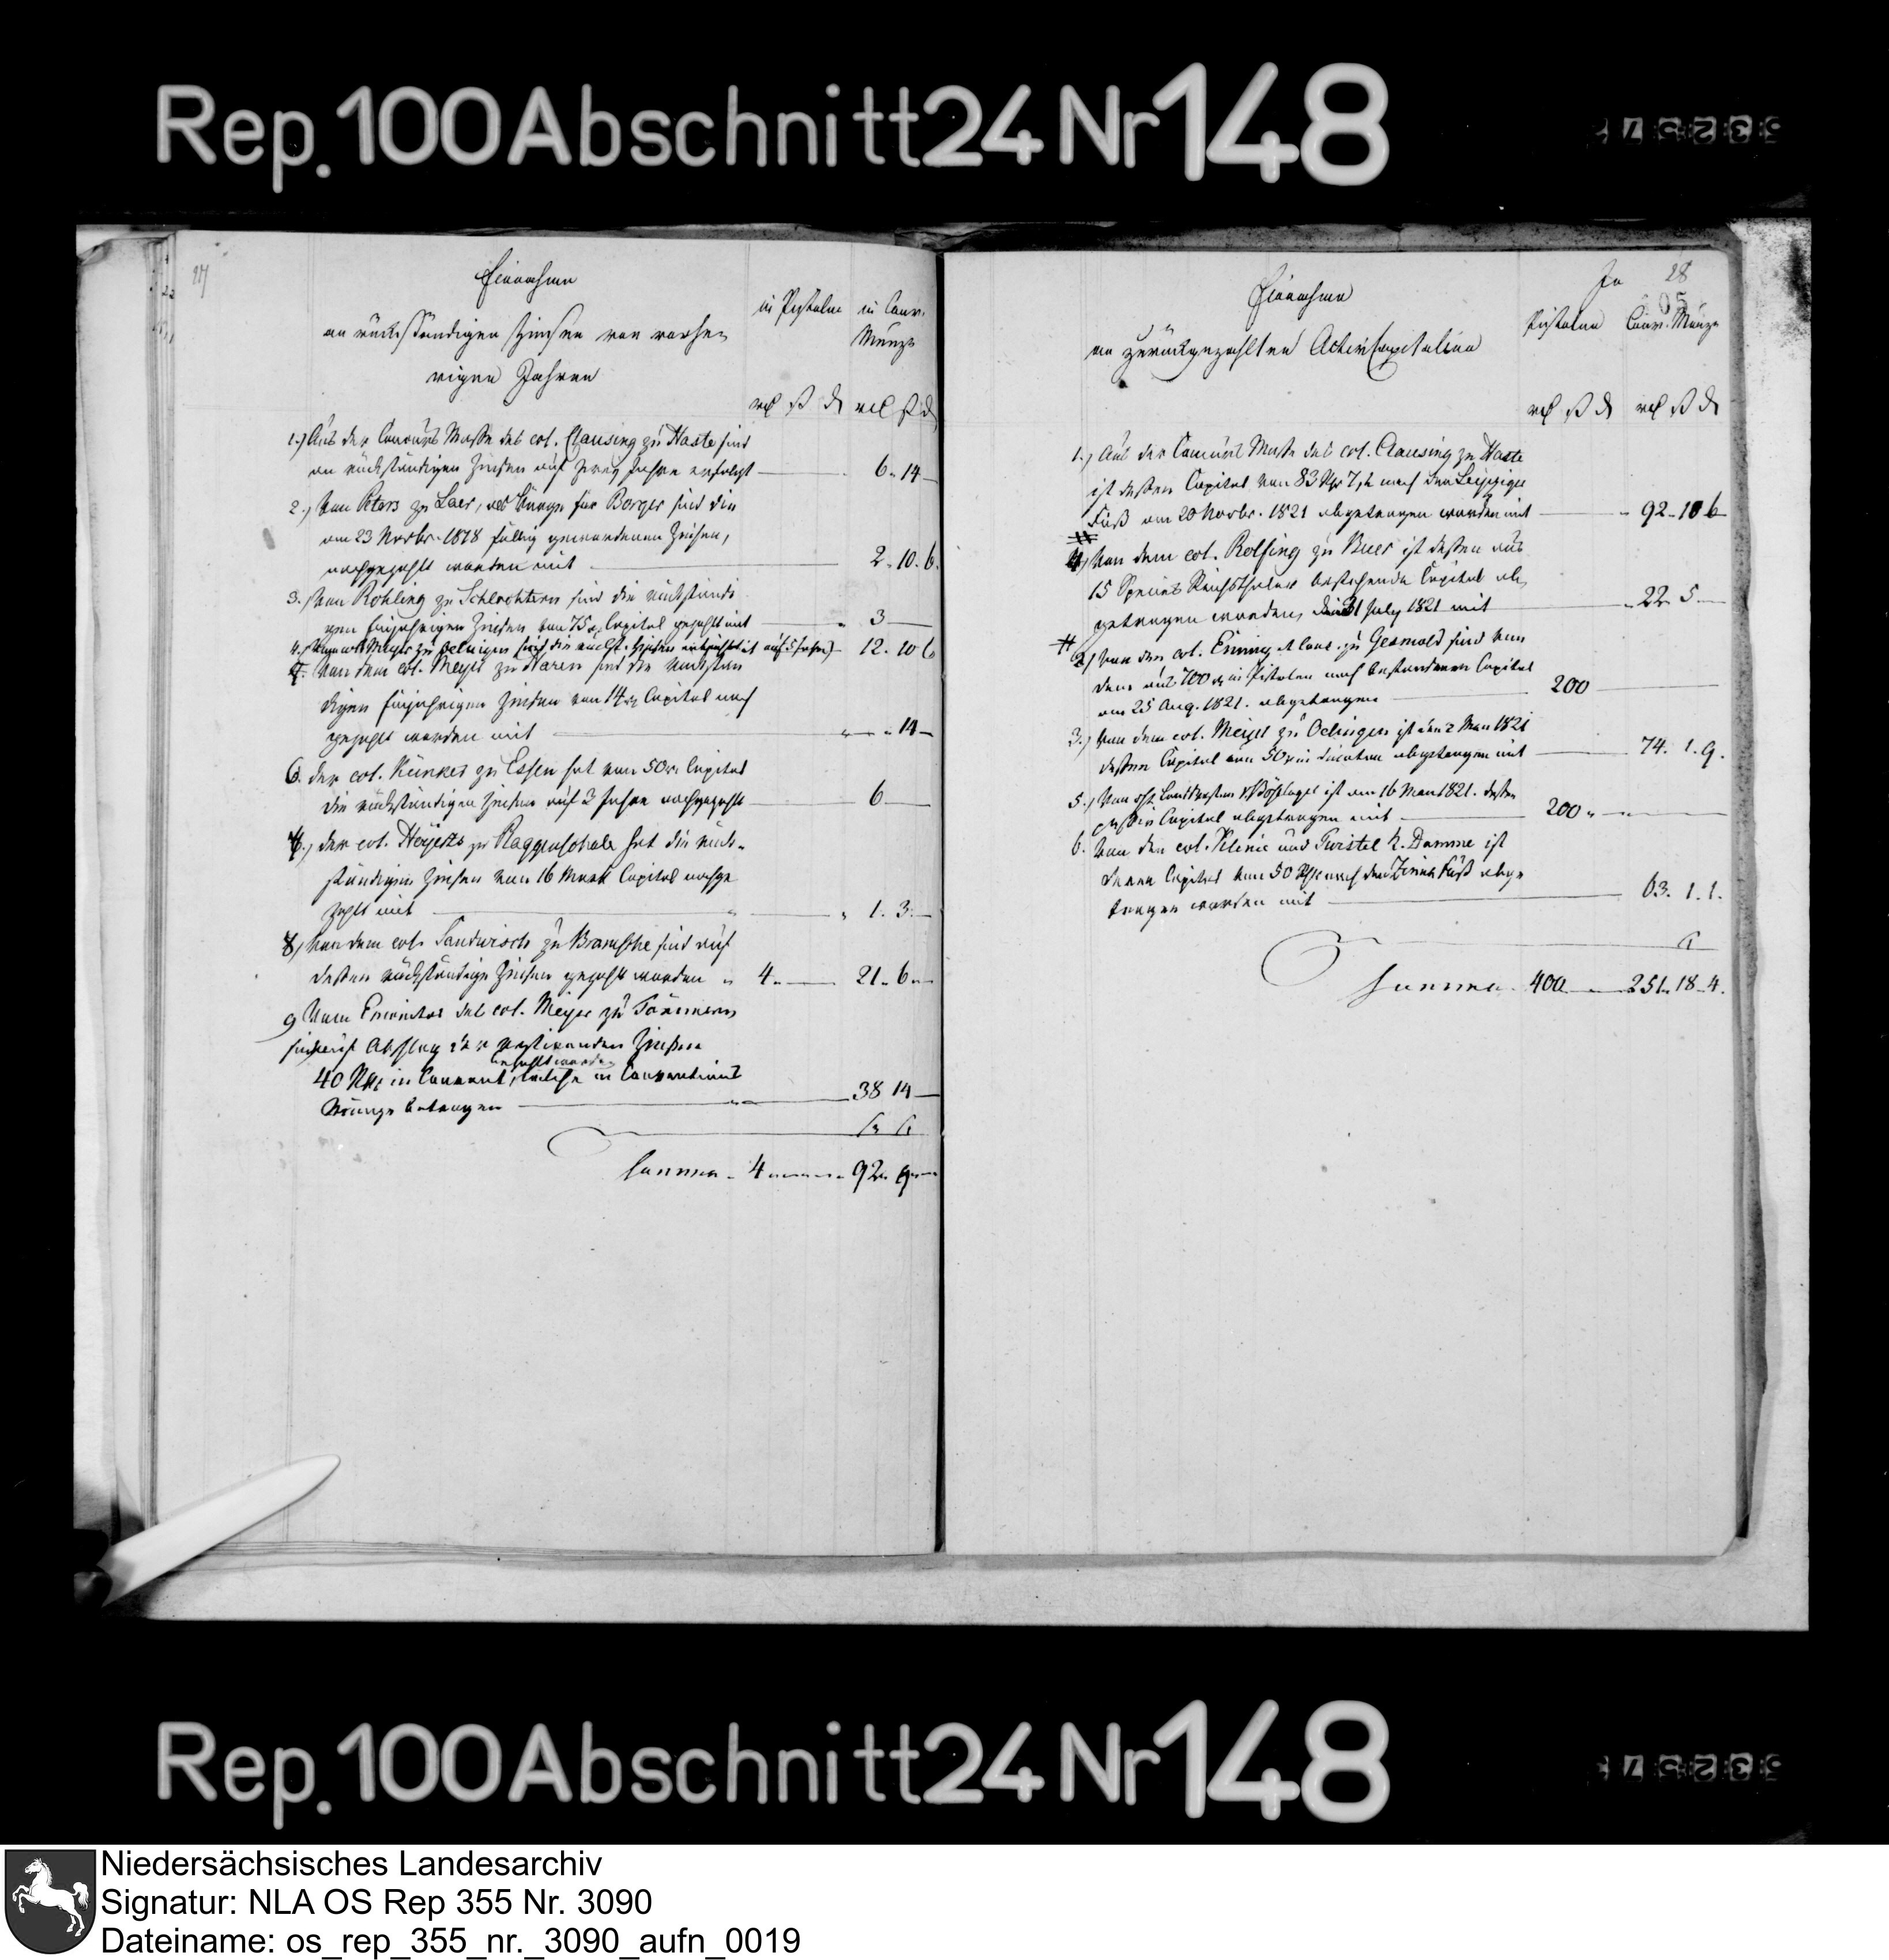 Rep. 100 Abschnitt 24 Nr 148
27
Einnahme
an rückständigen Zinsen von vorhe-
rigen Jahren
in Pistolen
in Conv.
Münze
1.) Aus der Concurs Masse des col. Clausing zu Haste sind
an rückständigen Zinsen auf zwey Jahre erfolgt 6. 14
2.) Von Peters zu Laer, als Bürge für Borger sind die
am 23 Novbr. 1818 fällig gewordenen Zinsen,
nachgezahlt worden mit 2. 10. 6.
3. Von Rohling zu Schlochtern sind die rückständi
gen einjährigen Zinsen von 75 Capital gezahlt mit 3
4.) Vom col. Meyer zu Oehingen sind die rückst. Zinsen auf 5 Jahre 12. 10 6
Von dem col. Meyer zu Haren sind die rückstän
digen einjährigen Zinsen von 14 Capital nach
gezahlt worden mit 14
6. der col. Künker zu Essen hat von 50 Capital
die rückständigen Zinsen auf 3 Jahre nachgezahlt 6
der col. zu Raggenschale hat die rück-
ständigen Zinsen von 16 Mark Capital nachge
zahlt mit 1. 3.
8.) Von dem col. Sandwisch zu Bramsche sind auf
dessen rückständige Zinsen gezahlt worden 4. 21. 6.
9 Vom des col. Meyer zu
sind auf Abschlag der restirenden Zinsen
bezahlt worden
40 in Courant, welche in Conventions
Münze betragen 38 14
Summa. 4 92. 9.
28
In
Einnahme
an zurückgezahlten Activ Capitalien
Pistolen
Conv. Münze
1.) Aus der Concurs Masse des col. Clausing zu Haste
ist dessen Capital von 83 7 nach dem Leipziger
Fuß am 20 Novbr. 1821 abgetragen worden mit 92. 10 6
Von dem col. Rolfing zu Buer ist dessen aus
15 Species Reichsthaler bestehende Capital ab-
getragen worden, den 31 July 1821 mit 22 5
2.) Von den col. zu Gesmold sind von
dem aus 700 in Pistolen noch bestandenen Capital
am 25 Aug. 1821. abgetragen 200
3.) Von dem col. Meyer zu Oehingen ist den 2 May 1821
dessen Capital von 50 in abgetragen mit 74. 1. 9.
5.) Von ist am 16 1821. dessen
Capital abgetragen mit 200
6. Von den col. Kleine und Twistel K. Damme ist
deren Capital von 50 nach dem Fuß abge
tragen worden mit 63. 1. 1.
Summa 400 251. 18. 4.
Rep. 100 Abschnitt 24 Nr 148
Niedersächsisches Landesarchiv
Signatur: NLA OS Rep 355 Nr. 3090
Dateiname: os_rep_355_nr._3090_aufn_0019